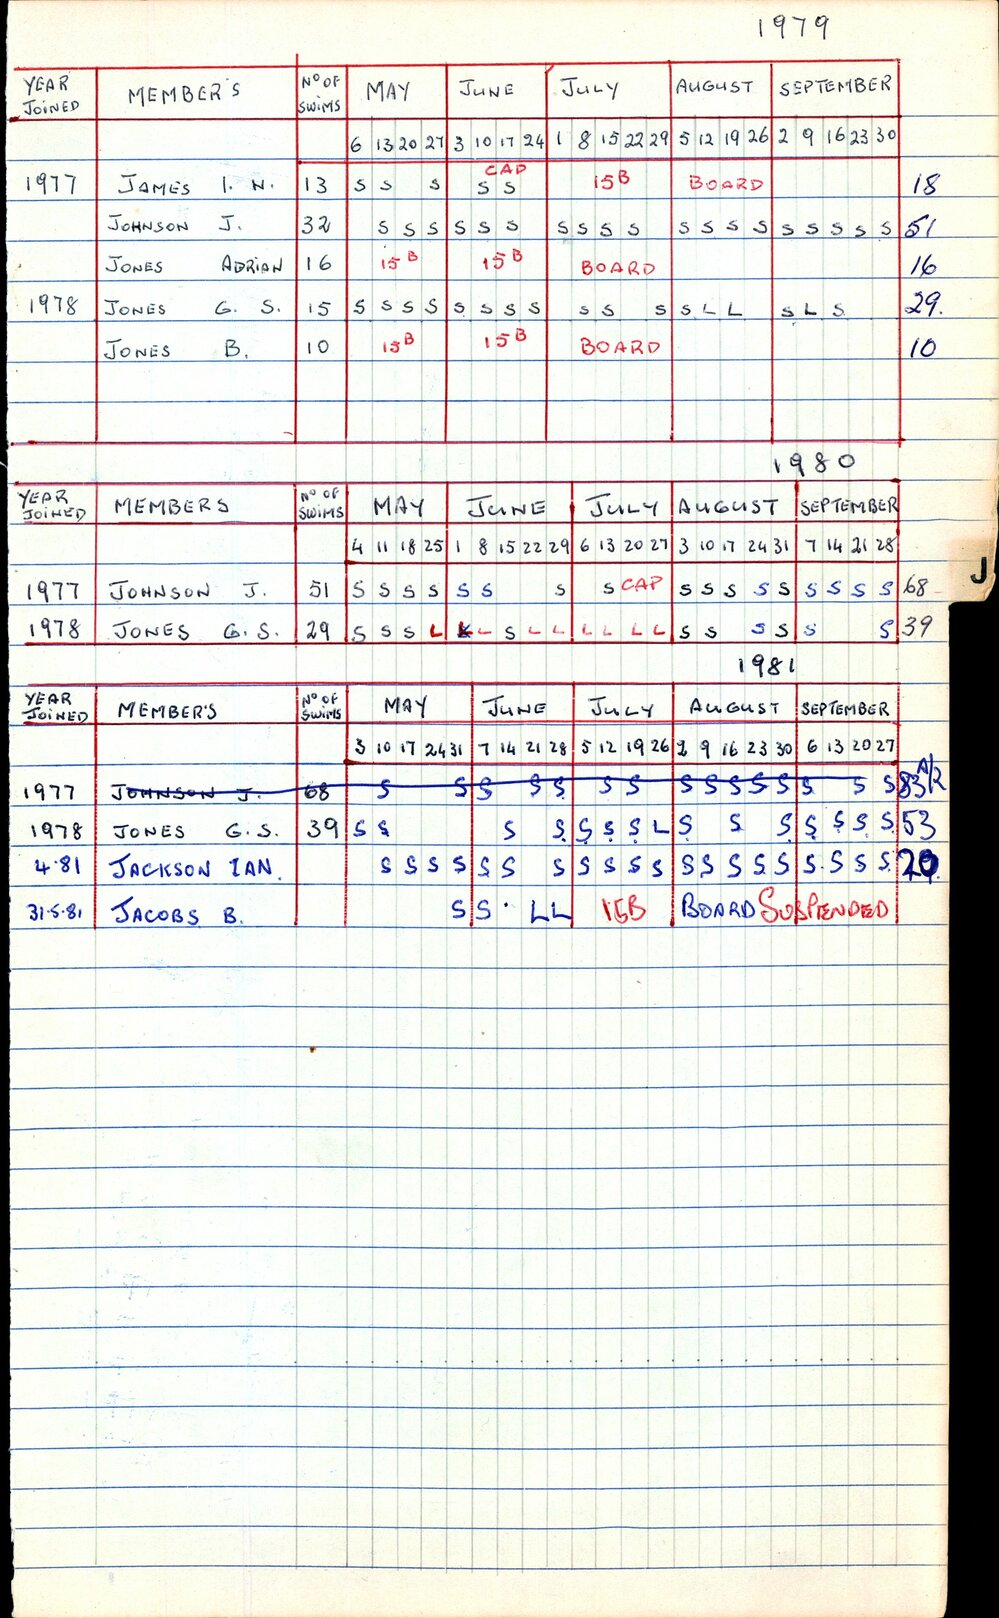 1979
YEAR JOINED MEMBER'S Nº OF SWIMS MAY JUNE JULY AUGUST SEPTEMBER
6 13 20 27 3 10 17 24 1 8 15 22 29 5 12 19 26 2 9 16 23 30
CAP
1977 JAMES I. N. 13 S S S S S 15B BOARD 18
JOHNSON J. 32 S S S S S S S S S S S S S S S S S S S 51
JONES ADRIAN 16 15B 15B BOARD 16
1978 JONES G. S. 15 S S S S S S S S S S S S L L S L S 29.
JONES B. 10 15B 15B BOARD 10
1980
YEAR JOINED MEMBERS Nº OF SWIMS MAY JUNE JULY AUGUST SEPTEMBER
4 11 18 25 1 8 15 22 29 6 13 20 27 3 10 17 24 31 7 14 21 28
J
1977 JOHNSON J. 51 S S S S S S S S CAP S S S S S S S S S 68
1978 JONES G.S. 29 S S S L L L S L L L L L L S S S S S S 39
1981
YEAR JOINED MEMBER'S Nº OF SWIMS MAY JUNE JULY AUGUST SEPTEMBER
3 10 17 24 31 7 14 21 28 5 12 19 26 2 9 16 23 30 6 13 20 27
1977 JOHNSON J. 68 S S S S S S S S S S S S S S S 83 A/R
1978 JONES G.S. 39 S S S S S S S L S S S S S S S 53
4.81 JACKSON IAN. S S S S S S S S S S S S S S S S S S S 20
31.5.81 JACOBS B. S S L L 15B BOARD SUSPENDED